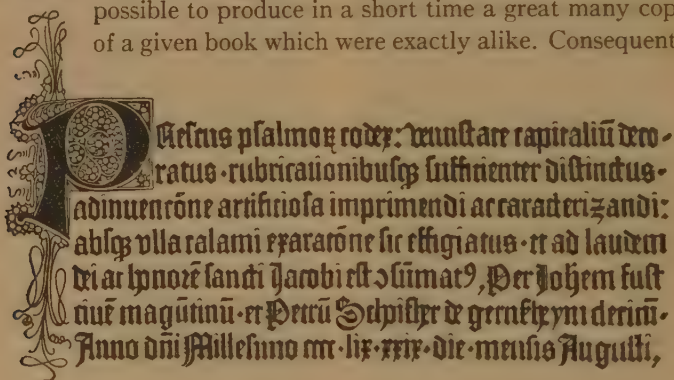 possible to produce in a short time a great many cop
of a given book which were exactly alike. Consequent
PResens psalmoꝝ codex: venustate capitaliū deco-
ratus·rubricationibusqꝫ sufficienter distinctus·
adinuencōne artificiosa imprimendi ac caracterizandi:
absqꝫ vlla calami exaracōne sic effigiatus·et ad laudem
dei ac honorē sancti Jacobi est ↄsūmatꝰ, Per Johem fust
ciuē magūtinū·et Petrū Schoifher de gernszheym clericū·
Anno dn̄i Millesimo cccc·lix·xxix·die·mensis Augusti,